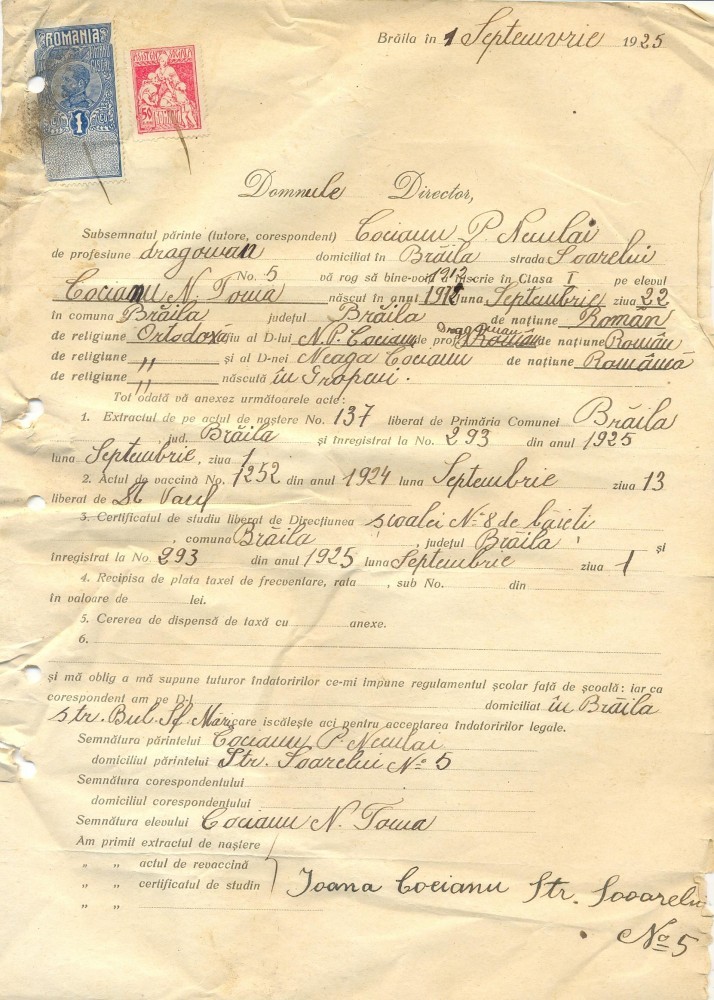 Brăila în 1 Septemvrie 1925
ROMANIA
TIMBRU FISCAL
1
50
ROMANIA
Domnule Director,
Subsemnatul părinte (tutore, corespondent) Cocianu P. Neculai
de profesiune dragoman domiciliat în Brăila strada Soarelui
No. 5 vă rog să bine-voiți a înscrie în Clasa I pe elevul
Cocianu N. Toma născut în anul 1912 luna Septembrie ziua 22
în comuna Brăila județul Brăila de națiune Român
de religiune Ortodoxă fiu al D-lui N. P. Cocianu de prof. Dragoman de națiune Român
de religiune " și al D-nei Neaga Cocianu de națiune Română
de religiune " născută în Gropeni.
Tot odată vă anexez următoarele acte:
1. Extractul de pe actul de naștere No. 137 liberat de Primăria Comunei Brăila
jud. Brăila și înregistrat la No. 293 din anul 1925
luna Septembrie, ziua 1
2. Actul de vaccină No. 1252 din anul 1924 luna Septembrie ziua 13
liberat de
3. Certificatul de studiu liberat de Direcțiunea școalei No 8 de băieți
, comuna Brăila, județul Brăila și
înregistrat la No. 293 din anul 1925 luna Septembrie ziua 1
4. Recipisa de plata taxei de frecventare, rata , sub No. din
în valoare de lei.
5. Cererea de dispensă de taxă cu anexe.
6.
și mă oblig a mă supune tuturor îndatoririlor ce-mi impune regulamentul școlar față de școală: iar ca
corespondent am pe D-l domiciliat în Brăila
str. Bul. Sf. Maria care iscălește aci pentru acceptarea îndatoririlor legale.
Semnătura părintelui Cocianu P. Neculai
domiciliul părintelui Str. Soarelui No 5
Semnătura corespondentului
domiciliul corespondentului
Semnătura elevului Cocianu N. Toma
Am primit extractul de naștere
" " actul de revaccină
" " certificatul de studin Ioana Cocianu Str. Sooarelui
" " No 5